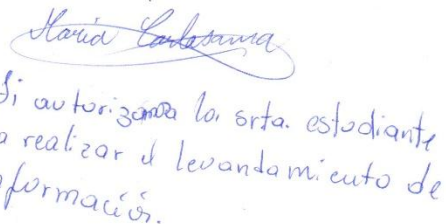 María Carlosama
Si autorizo a la srta. estudiante
a realizar el levantamiento de
información.